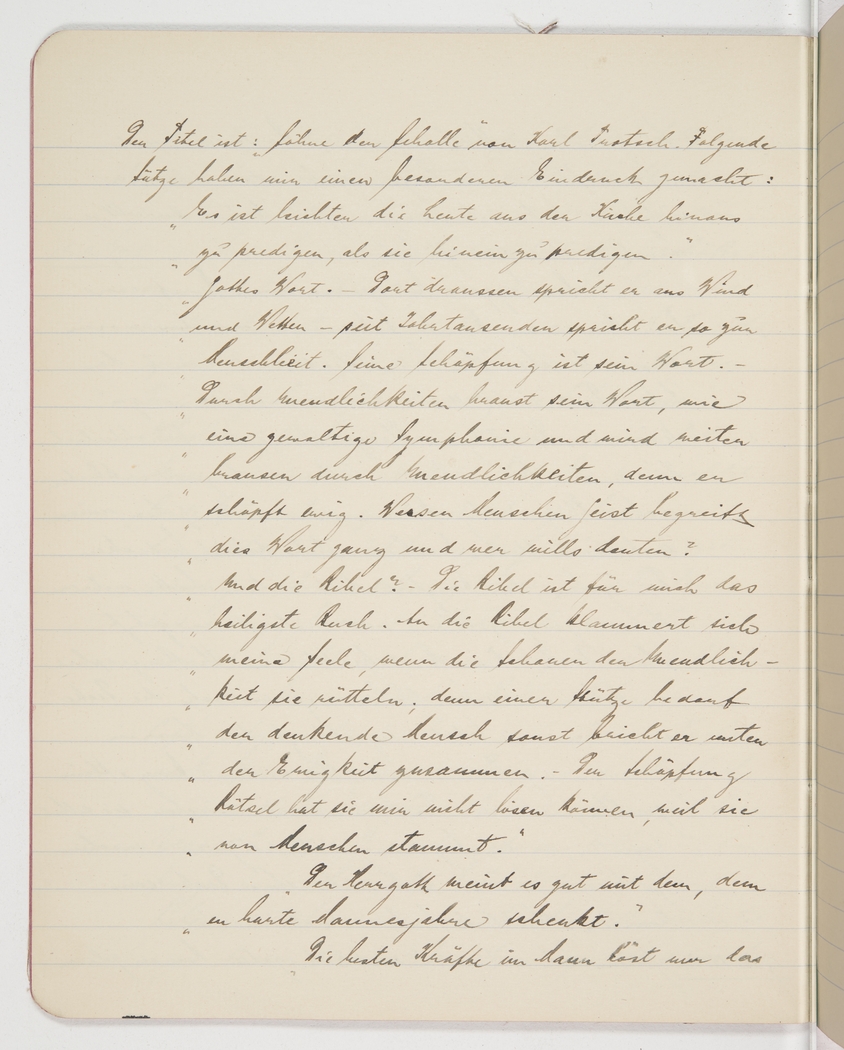 Der Titel ist: „Söhne der Scholle" von Karl Trotsch. Folgende
Sätze haben mir einen besonderen Eindruck gemacht:
„Es ist leichter die Leute aus der Kirche hinaus
„zu predigen, als sie hinein zu predigen."
„Gottes Wort. – Dort draussen spricht er aus Wind
„und Wetter – seit Jahrtausenden spricht er so zur
„Menschheit. Seine Schöpfung ist sein Wort. –
„Durch Unendlichkeiten braust sein Wort, wie
„eine gewaltige Symphonie und wird weiter
„brausen durch Unendlichkeiten, denn er
„schöpft ewig. Wessen Menschen Geist begreift
„dies Wort ganz und wer wills deuten?
„Und die Bibel? – Die Bibel ist für mich das
„heiligste Buch. An die Bibel klammert sich
„meine Seele, wenn die Schauer der Unendlich-
„keit sie rütteln, denn einer Stütze bedarf
„der denkende Mensch sonst bricht er unter
„der Ewigkeit zusammen. – Der Schöpfung
„Rätsel hat sie mir nicht lösen können, weil sie
„von Menschen stammt."
„Der Herrgott meint es gut mit dem, dem
„er harte Mannesjahre schenkt."
„Die besten Kräfte im Mann löst nur das